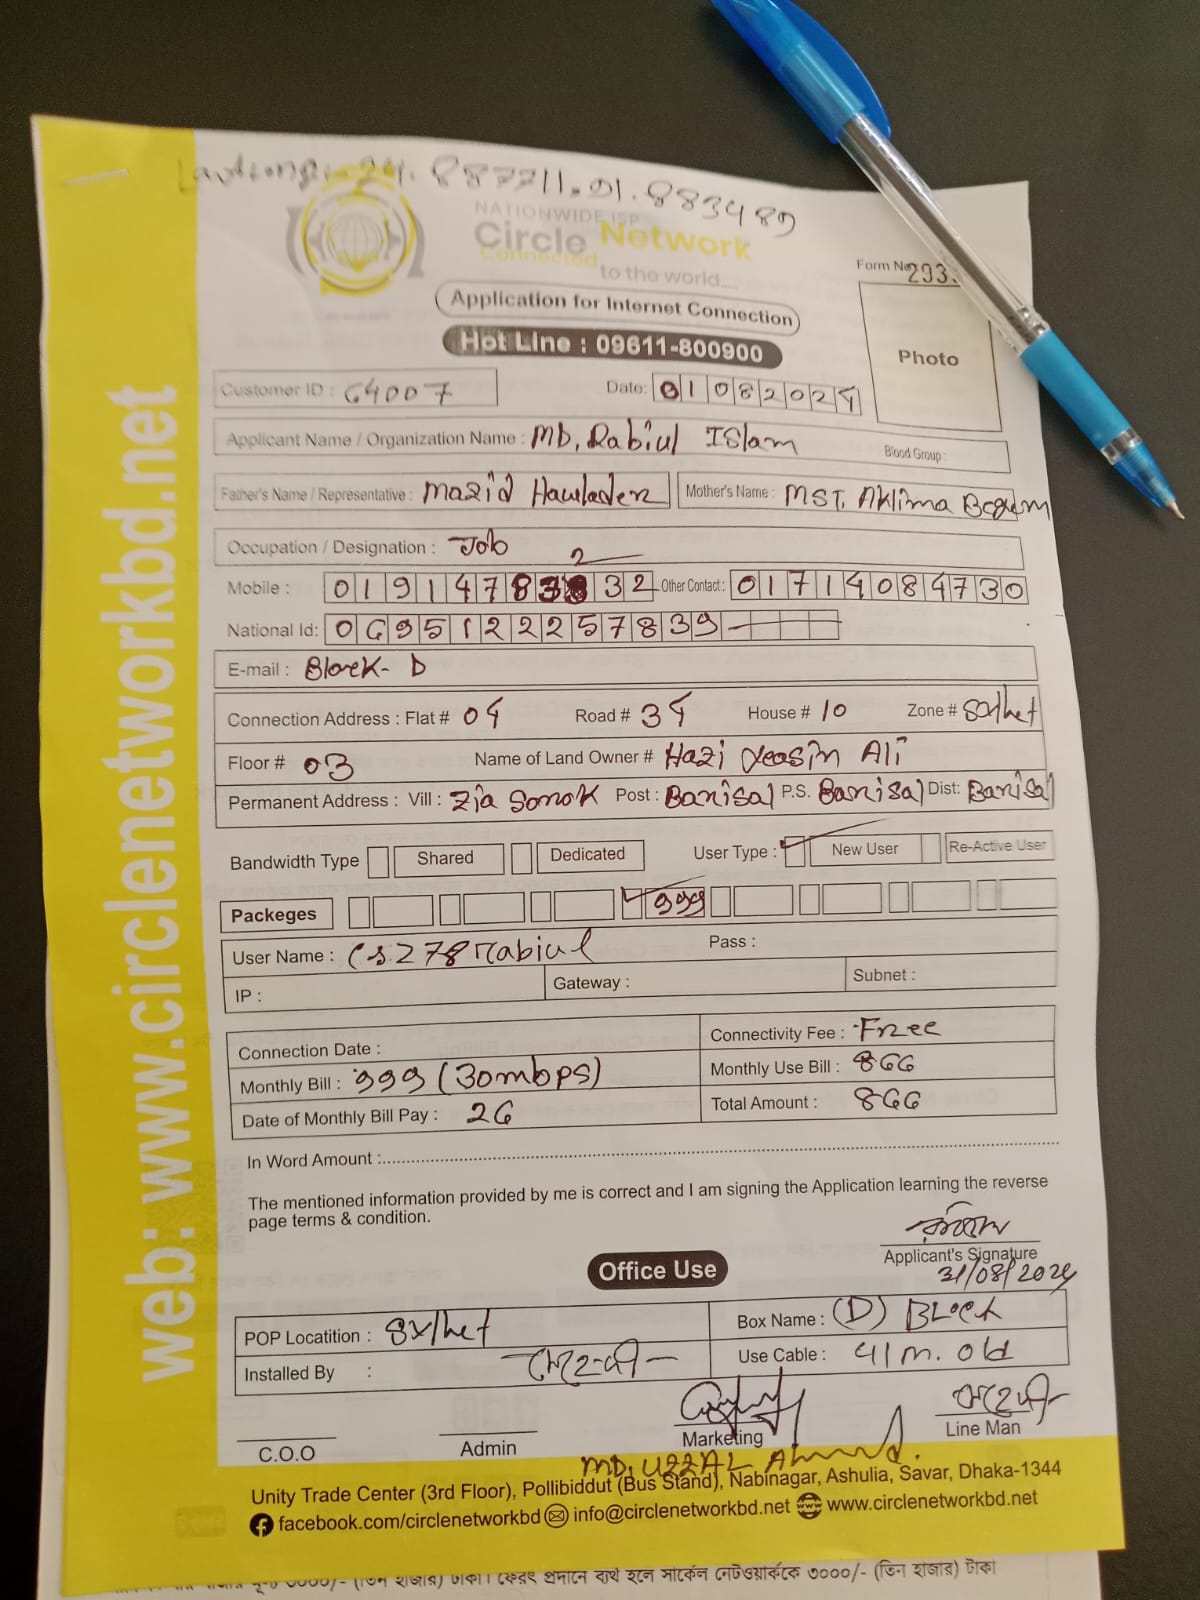 24. 887711.91.883489
NATIONWIDE ISP
Circle Network
Connected to the world...
Form No 293
Application for Internet Connection
Hot Line : 09611-800900
Photo
Customer ID : 64007
Date: 01082024
Applicant Name / Organization Name : MD. Rabiul ISlam
Blood Group :
Father's Name / Representative : Mazid Hawladen
Mother's Name : MST. Aklima Begum
Occupation / Designation : Job
2
Mobile : 01914783 32 Other Contact : 01714084730
National Id: 0695122257839
E-mail : Block- D
Connection Address : Flat # 04 Road # 34 House # 10 Zone #
Floor # 03 Name of Land Owner # Hazi Yeasin Ali
Permanent Address : Vill : Zia Sorok Post : Barisal P.S. Barisal Dist: Barisal
Bandwidth Type Shared Dedicated User Type : New User Re-Active User
Packeges 999
User Name : cs278rabiul Pass :
IP : Gateway : Subnet :
Connection Date : Connectivity Fee : Free
Monthly Bill : 999 (30mbps) Monthly Use Bill : 866
Date of Monthly Bill Pay : 26 Total Amount : 866
In Word Amount :
The mentioned information provided by me is correct and I am signing the Application learning the reverse
page terms & condition.
Applicant's Signature
31/08/2024
Office Use
POP Locatition : Box Name : (D) BLock
Installed By : Use Cable : 41m. old
C.O.O Admin Marketing Line Man
MD. UZZAL Ahmed.
Unity Trade Center (3rd Floor), Pollibiddut (Bus Stand), Nabinagar, Ashulia, Savar, Dhaka-1344
facebook.com/circlenetworkbd info@circlenetworkbd.net www.circlenetworkbd.net
web: www.circlenetworkbd.net
৩০০০/- (তিন হাজার) টাকা। ফেরৎ প্রদানে ব্যর্থ হলে সার্কেল নেটওয়ার্ককে ৩০০০/- (তিন হাজার) টাকা